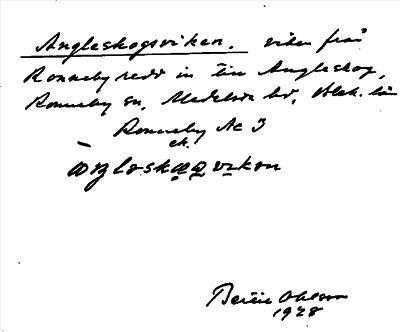 Angleskogsviken, viken från
Ronneby redd in till Angleskog,
Ronneby sn, Medelsta hd, Blek. län
Ronneby Ae 3
ek.
Ohlsson
1928